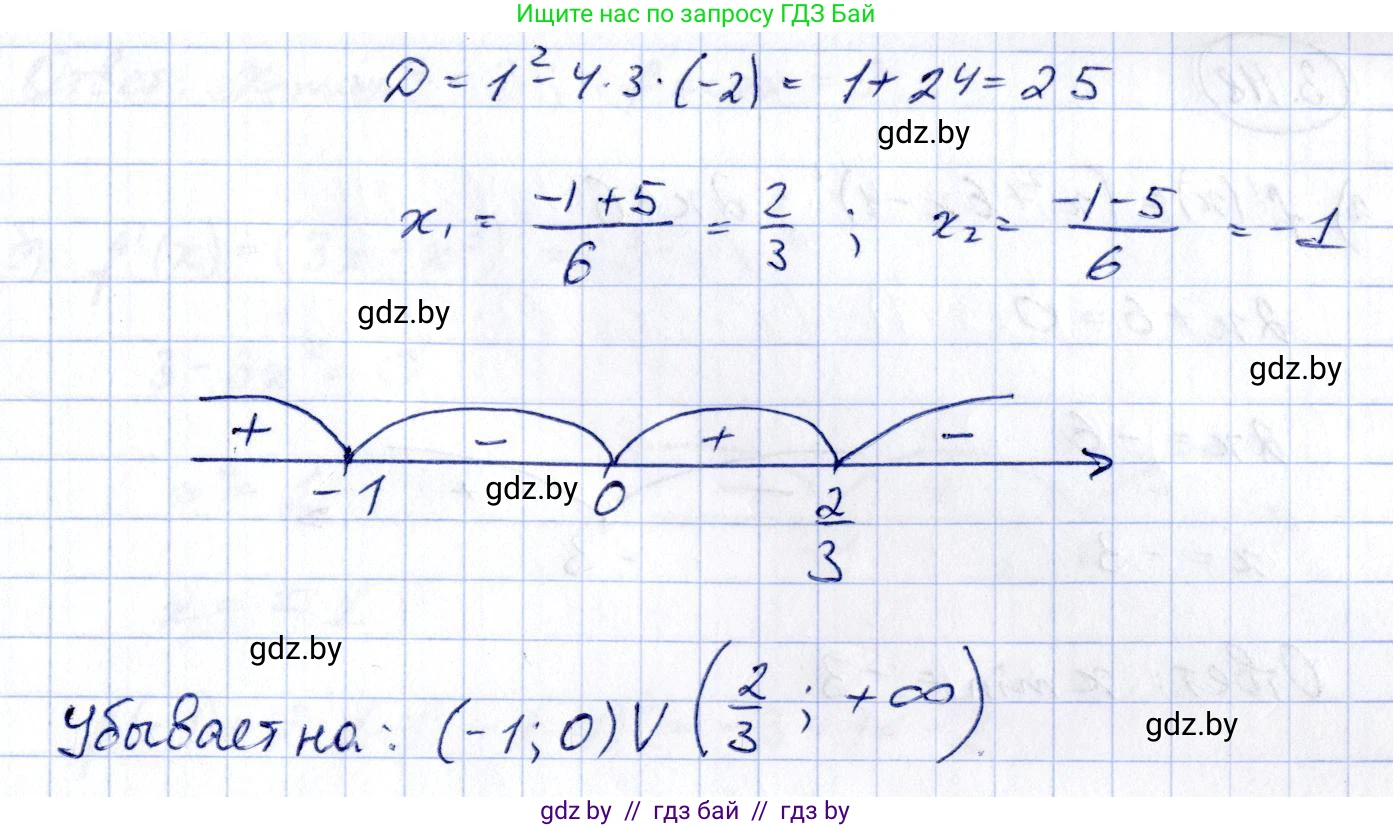 Ищите нас по запросу ГДЗ Бай
D = 1² - 4 · 3 · (-2) = 1 + 24 = 25
gdz.by
x₁ = (-1 + 5)/6 = 2/3 ; x₂ = (-1 - 5)/6 = -1
gdz.by
gdz.by
+ - + -
-1 gdz.by 0 2/3
gdz.by
Убывает на: (-1; 0) V (2/3 ; +∞).
gdz.by
gdz.by // гдз бай // гдз by